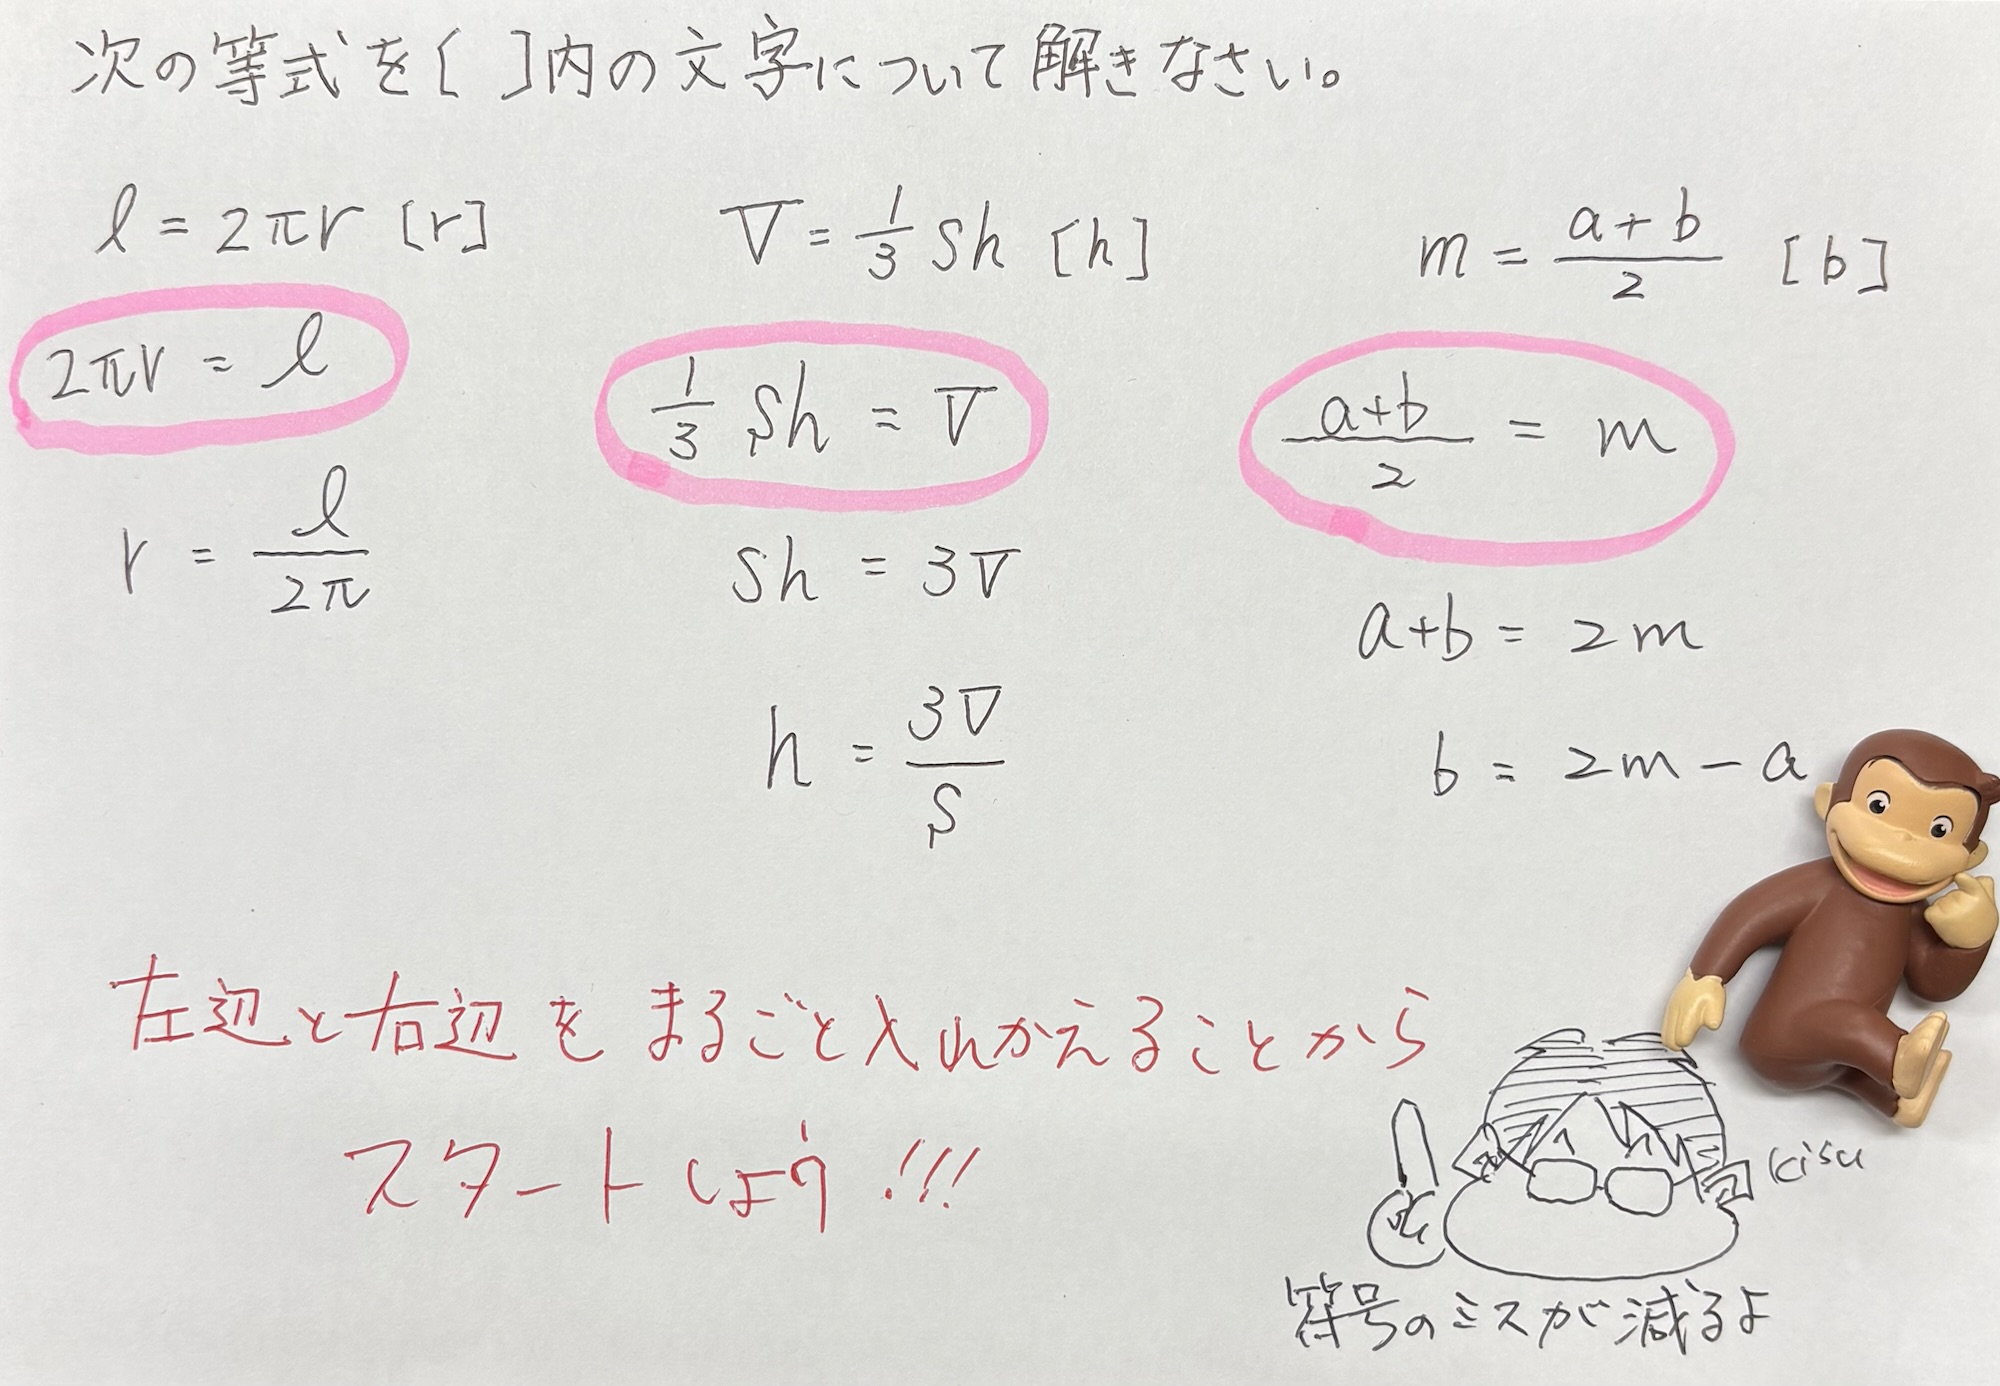 次の等式を[ ]内の文字について解きなさい。
l = 2πr [r]
2πr = l
r = l/2π
V = 1/3 Sh [h]
1/3 Sh = V
Sh = 3V
h = 3V/S
m = a+b/2 [b]
a+b/2 = m
a+b = 2m
b = 2m - a
左辺と右辺をまるごと入れかえることから
スタートしよう!!!
kisu
符号のミスが減るよ